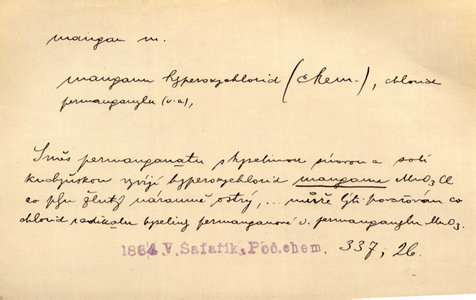 mangan m.
manganu hyperoxychlorid (chem.), chlorid
permanganylu (v. a.),
Směs permanganatu s kyselinou sírovou a solí
kuchyňskou vyvíjí hyperoxychlorid manganu MnO₃Cl
co plyn žlutý náramně ostrý, ... může býti považován co
chlorid radikalu kyseliny permanganové v. permanganylu MnO₃.
1864 V. Šafařík, Poč. chem. 337, 26.